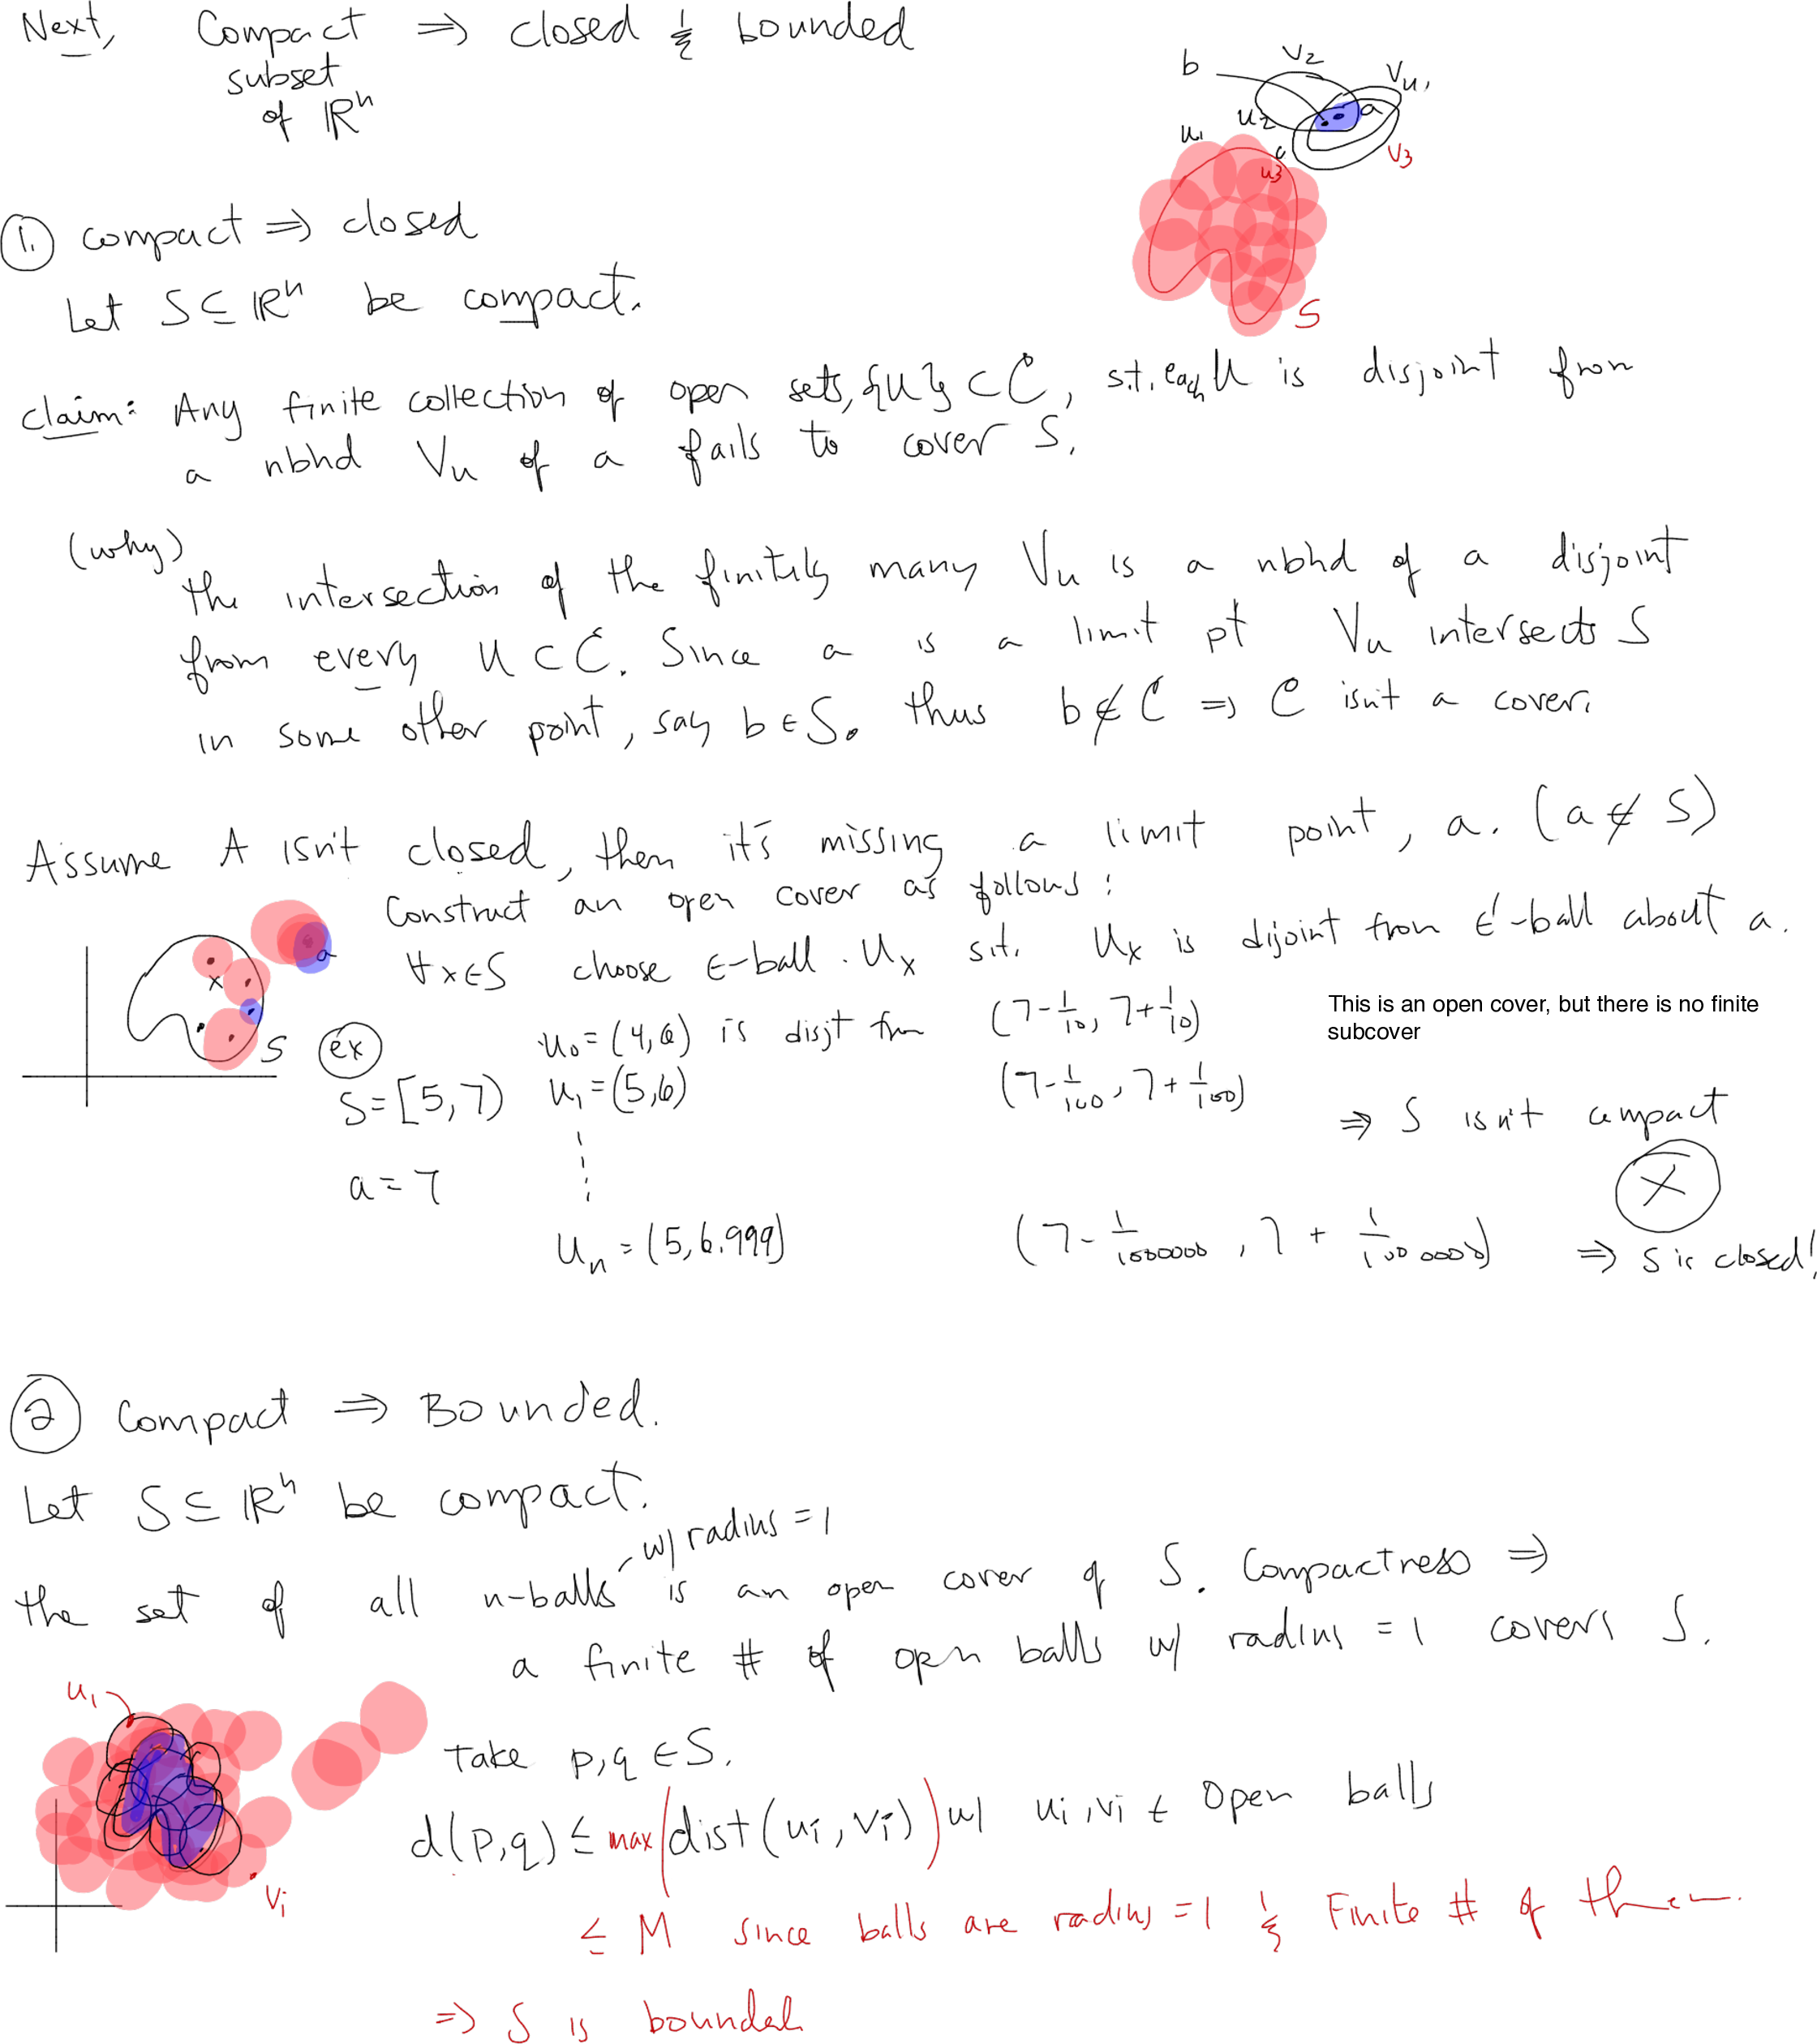 Next, Compact ⇒ closed & bounded
subset
of ℝⁿ
b
V₂
V_u₁
u₂
a
u₁
V₃
u₃
S
① compact ⇒ closed
Let S ⊆ ℝⁿ be compact.
claim: Any finite collection of open sets, {U} ⊂ C, s.t. each U is disjoint from
a nbhd V_u of a fails to cover S.
(why)
the intersection of the finitely many V_u is a nbhd of a disjoint
from every U ⊂ C. Since a is a limit pt V_u intersects S
in some other point, say b ∈ S. thus b ∉ C ⇒ C isn't a cover.
Assume A isn't closed, then it's missing a limit point, a. (a ∉ S)
Construct an open cover as follows:
∀x∈S choose ε-ball. U_x s.t. U_x is dijoint from ε'-ball about a.
a
x
S
ex
u₀ = (4,6) is disjt from (7-1/10, 7+1/10)
This is an open cover, but there is no finite
subcover
S = [5,7) u₁ = (5,6) (7-1/100, 7+1/100)
⇒ S isn't compact
a = 7
X
u_n = (5, 6.999) (7-1/1000000, 7+1/1000000) ⇒ S is closed!
② Compact ⇒ Bounded.
Let S ⊆ ℝⁿ be compact.
w/ radius = 1
the set of all n-balls is an open cover of S. Compactness ⇒
a finite # of open balls w/ radius = 1 covers S.
u₁
Take p,q ∈ S.
d(p,q) ≤ max(dist(ui, vi)) w/ ui, vi ∈ Open balls
vi
≤ M since balls are radius = 1 & Finite # of them.
⇒ S is bounded